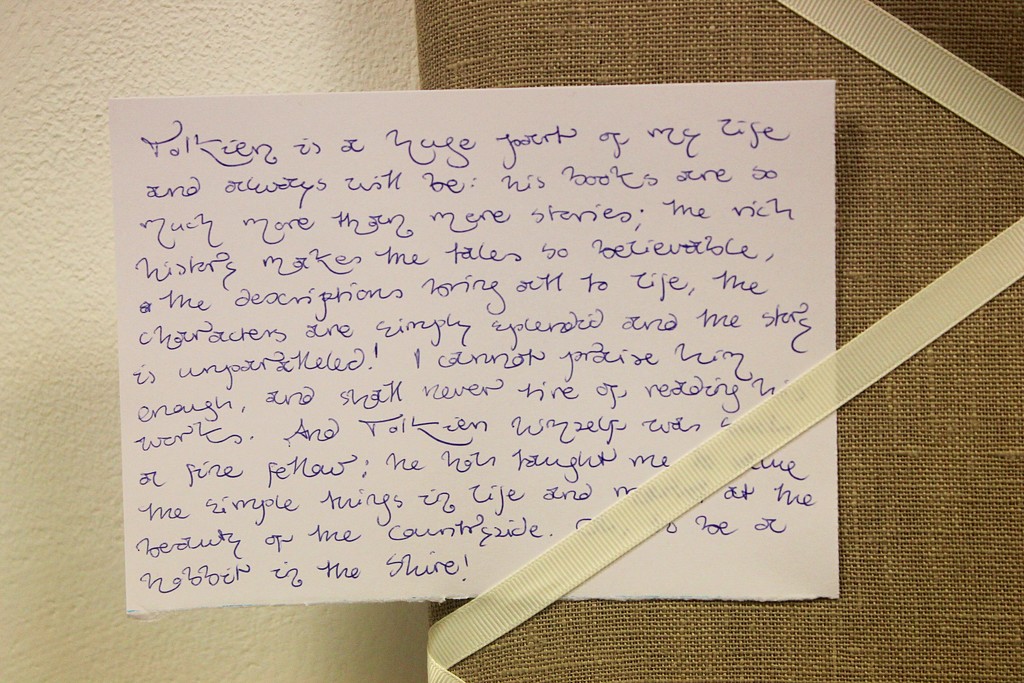 Tolkien is a huge part of my life
and always will be: his books are so
much more than mere stories; the rich
history makes the tales so believable,
the descriptions bring all to life, the
characters are simply splendid and the story
is unparalleled! I cannot praise him
enough, and shall never tire of reading
works. And Tolkien himself was
a fine fellow; he has taught me
the simple things in life and at the
beauty of the countryside. be a
hobbit in the Shire!